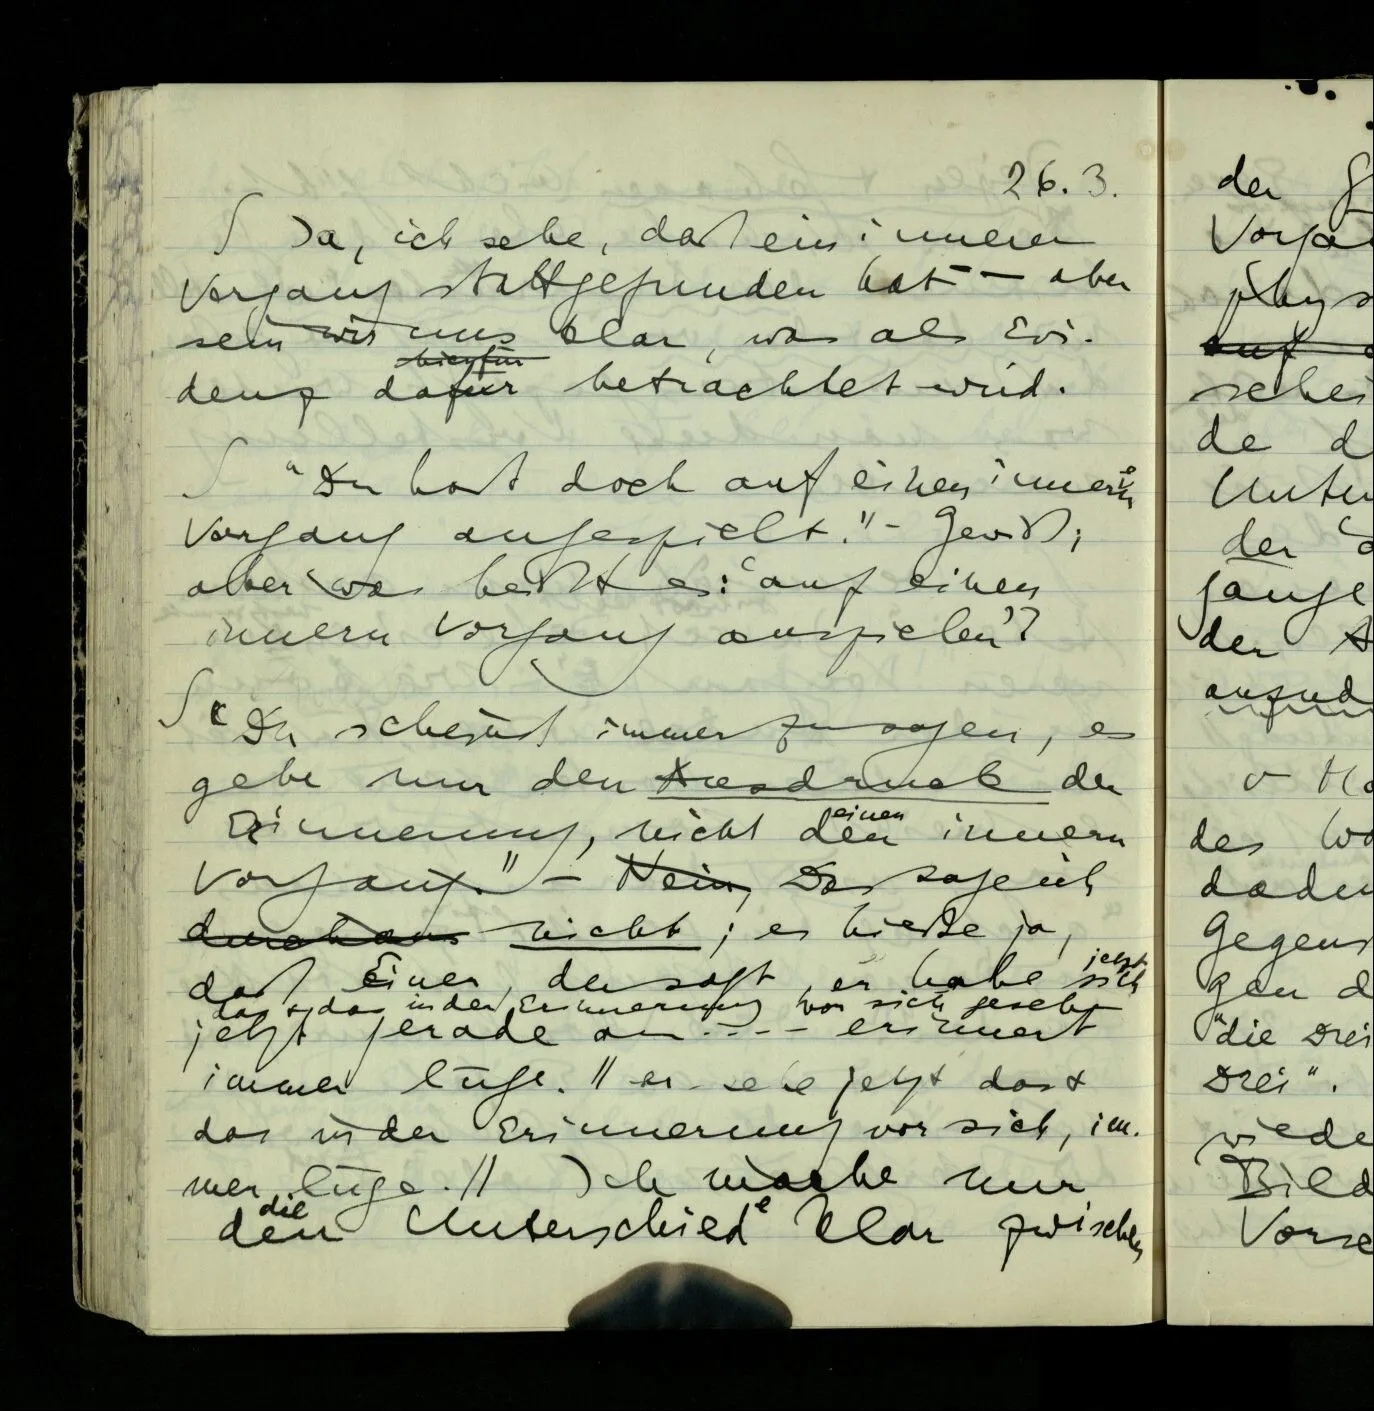 26.3.
∫ Ja, ich sehe, daß ein innerer
Vorgang stattgefunden hat — aber
sein wir uns klar, was als Evi-
hierfür
denz dafür betrachtet wird.
∫ "Du hast doch auf einen innern
Vorgang angespielt." – Gewiß;
aber was heißt es: 'auf einen
innern Vorgang anspielen'?
∫ "Du scheinst immer zu sagen, es
gebe nur den Ausdruck der
einen
Erinnerung, nicht den innern
Vorgang." – Nein, Das sage ich
durchaus nicht; es hieße ja,
jetzt
daß Einer, der sagt, er habe sich
das & das in der Erinnerung vor sich gesehen
jetzt gerade an .... erinnert
immer lüge. // er sehe jetzt das &
das in der Erinnerung vor sich, im-
mer lüge. // Ich mache nur
die
den Unterschiede klar zwischen
der
Vorga
phys
auf
schei
de d
Unter
der
gange
der
anzud
v
des Wo
dadu
Gegens
gen d
"die Drei
Drei".
wiede
Bild
Vorse